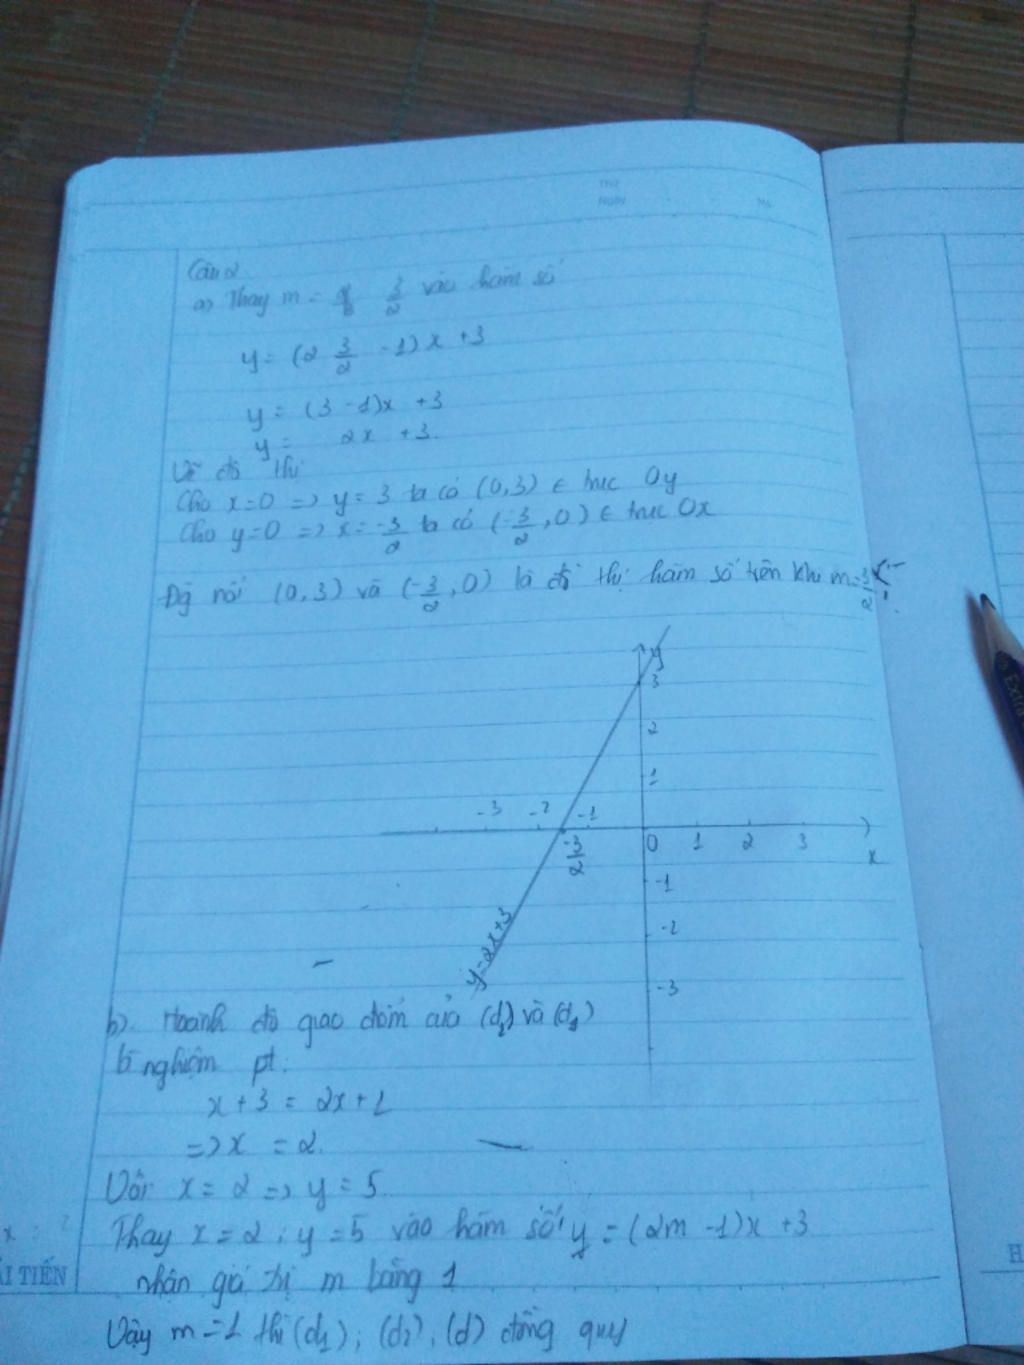 Thứ
Ngày
No
Câu 2
a) Thay m = 3/2 vào hàm số
y = (2 3/2 - 1) x + 3
y = (3 - 1)x + 3
y = 2x + 3.
Vẽ đồ thị
Cho x=0 => y = 3 ta có (0,3) ∈ trục Oy
Cho y=0 => x = -3/2 ta có (-3/2, 0) ∈ trục Ox
nối (0,3) và (-3/2, 0) là đồ thị hàm số trên khi m = 3/2
y
3
2
1
-3 -2 -1
-3/2
0 1 2 3
x
-1
-2
-3
y=2x+3
b). Hoành độ giao điểm của (d2) và (d1)
là nghiệm pt:
x + 3 = 2x + 1
=> x = 2.
Với x = 2 => y = 5.
Thay x = 2 ; y = 5 vào hàm số y = (2m - 1)x + 3
nhận giá trị m bằng 1
Vậy m = 1 thì (d1), (d2), (d) đồng quy
ẢI TIẾN
H
Extra